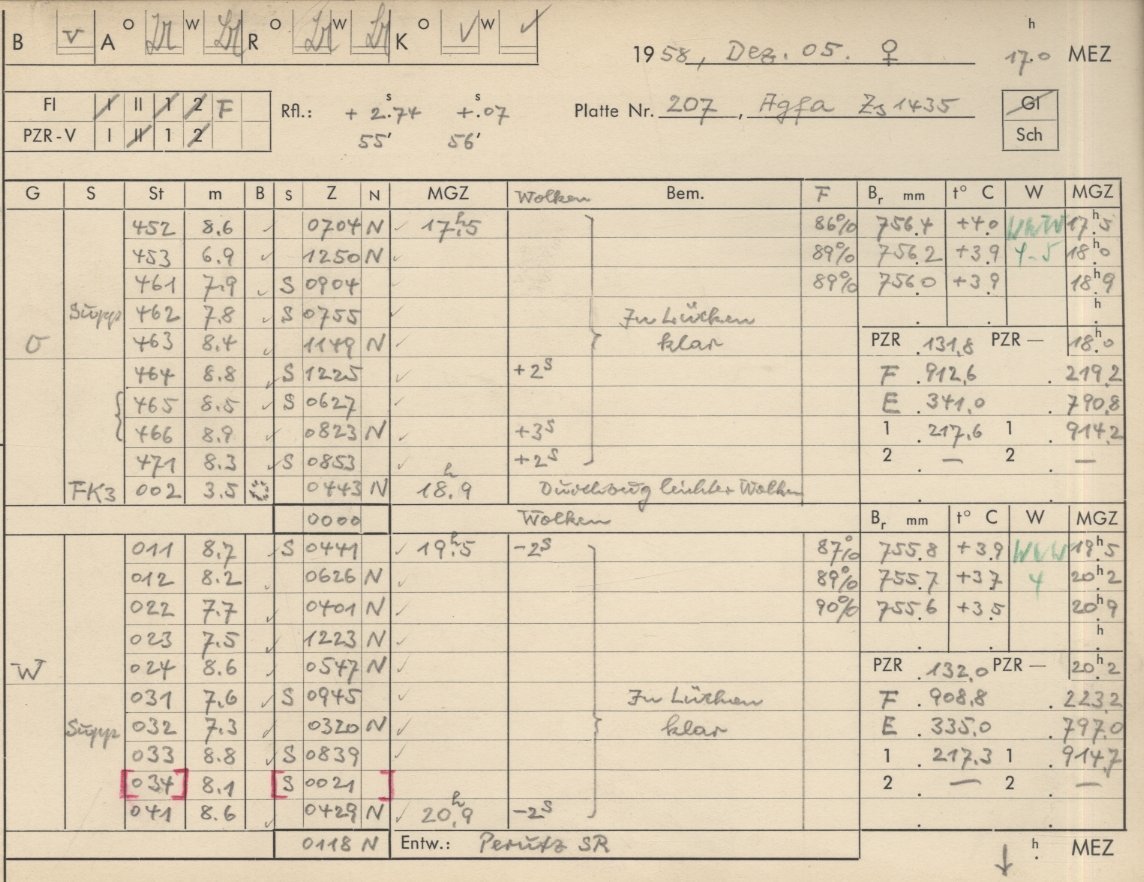 B v A O W R O W K O v W ✓
1958, Dez. 05. ♀ 17.0 h MEZ
FI I II 1 2 F Rfl.: + 2.74 s +.07 s Platte Nr. 207, Agfa Zs 1435 Gl
PZR-V I II 1 2 55' 56' Sch
G S St m B S Z N MGZ Wolken Bem. F Br mm t° C W MGZ
452 8.6 ✓ 0704 N ✓ 17h.5 86% 756.4 +4.0 WNW 17h.5
453 6.9 ✓ 1250 N ✓ 89% 756.2 +3.9 4-5 18h.0
461 7.9 ✓ S 0904 ✓ 89% 756.0 +3.9 18h.9
Supp 462 7.8 ✓ S 0755 ✓ In Lücken h
O 463 8.4 ✓ 1149 N ✓ klar PZR 131,8 PZR — 18h.0
464 8.8 ✓ S 1225 ✓ +2s F .912,6 . 219,2
465 8.5 ✓ S 0627 ✓ E .341,0 . 790,8
466 8.9 ✓ 0823 N ✓ +3s 1 .217,6 1 . 914,2
471 8.3 ✓ S 0853 ✓ +2s 2 — 2 —
FK3 002 3.5 0443 N 18h.9 Durchzug leichter Wolken
0000 Wolken Br mm t° C W MGZ
011 8.7 ✓ S 0441 ✓ 19h.5 -2s 87% 755.8 +3.9 WNW 19h.5
012 8.2 ✓ 0626 N ✓ 89% 755.7 +3.7 4 20h.2
022 7.7 ✓ 0401 N ✓ 90% 755.6 +3.5 20h.9
023 7.5 ✓ 1223 N ✓ h
W 024 8.6 ✓ 0547 N ✓ PZR .132,0 PZR — 20h.2
031 7.6 ✓ S 0945 ✓ In Lücken F .908,8 223,2
Supp 032 7.3 ✓ 0320 N ✓ klar E .335,0 . 797,0
033 8.8 ✓ S 0839 ✓ 1 .217,3 1 914,7
[034] 8.1 [S 0021 ] 2 — 2 —
041 8.6 ✓ 0429 N 20h.9 -2s
0118 N Entw.: Perutz SR ↓ h MEZ